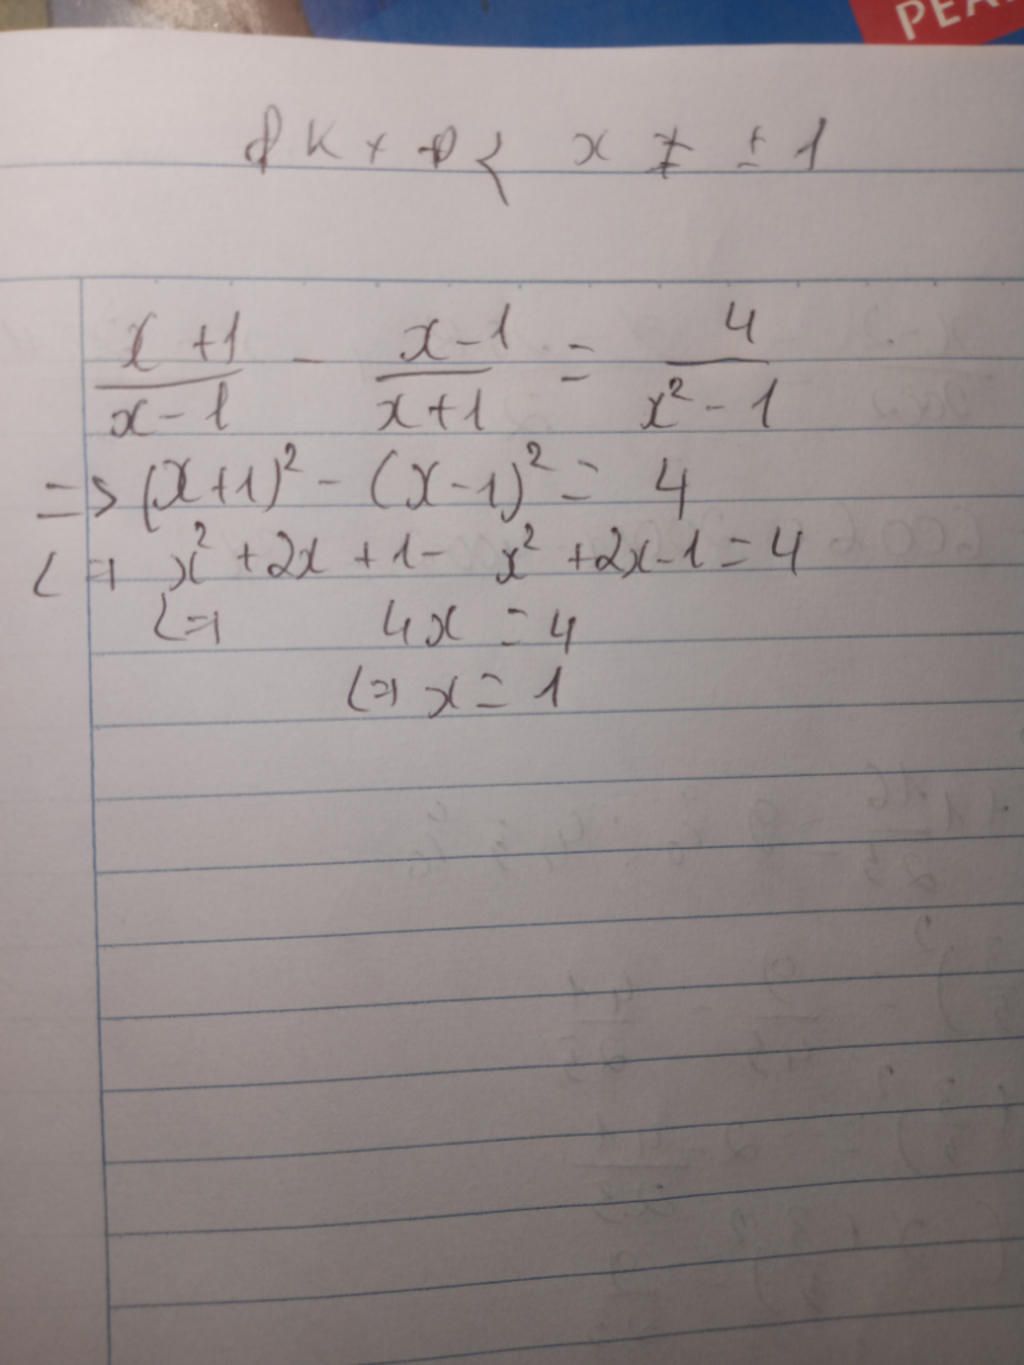 PEA
ĐKXĐ { x ≠ ± 1
x+1/x-1 - x-1/x+1 = 4/x²-1
=> (x+1)² - (x-1)² = 4
<=> x² +2x +1 - x² +2x-1 = 4
<=> 4x = 4
<=> x = 1